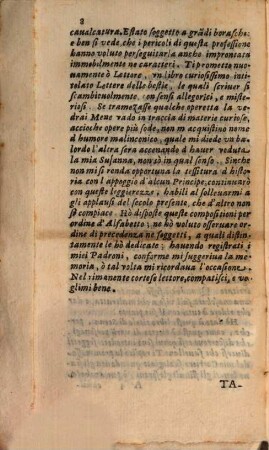 8
caualcatura. E stato soggetto a grādi borasche:
e ben si vede, che i pericoli di questa professione
hanno voluto perseguitarla anche improntata
immobilmente ne caratteri. Ti promette nuo-
uamente ò Lettore, vn libro curiosissimo inti-
tolato Lettere delle bestie, le quali scriuer si
scambieuolmente, con sensi allegorici, e miste-
riosi. Se tramezasse qualche operetta la ve-
drai. Meue vado in traccia di materie curiose,
acciochè opere più sode, non m'acquistino nome
d'humore malinconico, quale mi diedo vn ba-
lordo l'altra sera accenando d'hauer veduta
la mia Susanna, non sò in qual senso. Sinche
non mi si renda opportuna la tessitura d'histo-
ria con l'appoggio d'alcun Principe, continuarò
con queste leggierezze, habili al solleuarmi a
gli applausi del secolo presente, che d'altro non
so compiace. Hò disposte queste compositioni per
ordine d'Alfabetto; ne hò voluto osseruare or-
dine di precedenza ne soggetti, a quali distin-
tamente le hò dedicate; hauendo registrati i
miei Padroni, conforme mi suggeriua la me-
moria, ò tal volta mi ricordaua l'occasione.
Nel rimanente cortese lettore, compatisci, e vo-
glimi bene.
TA-